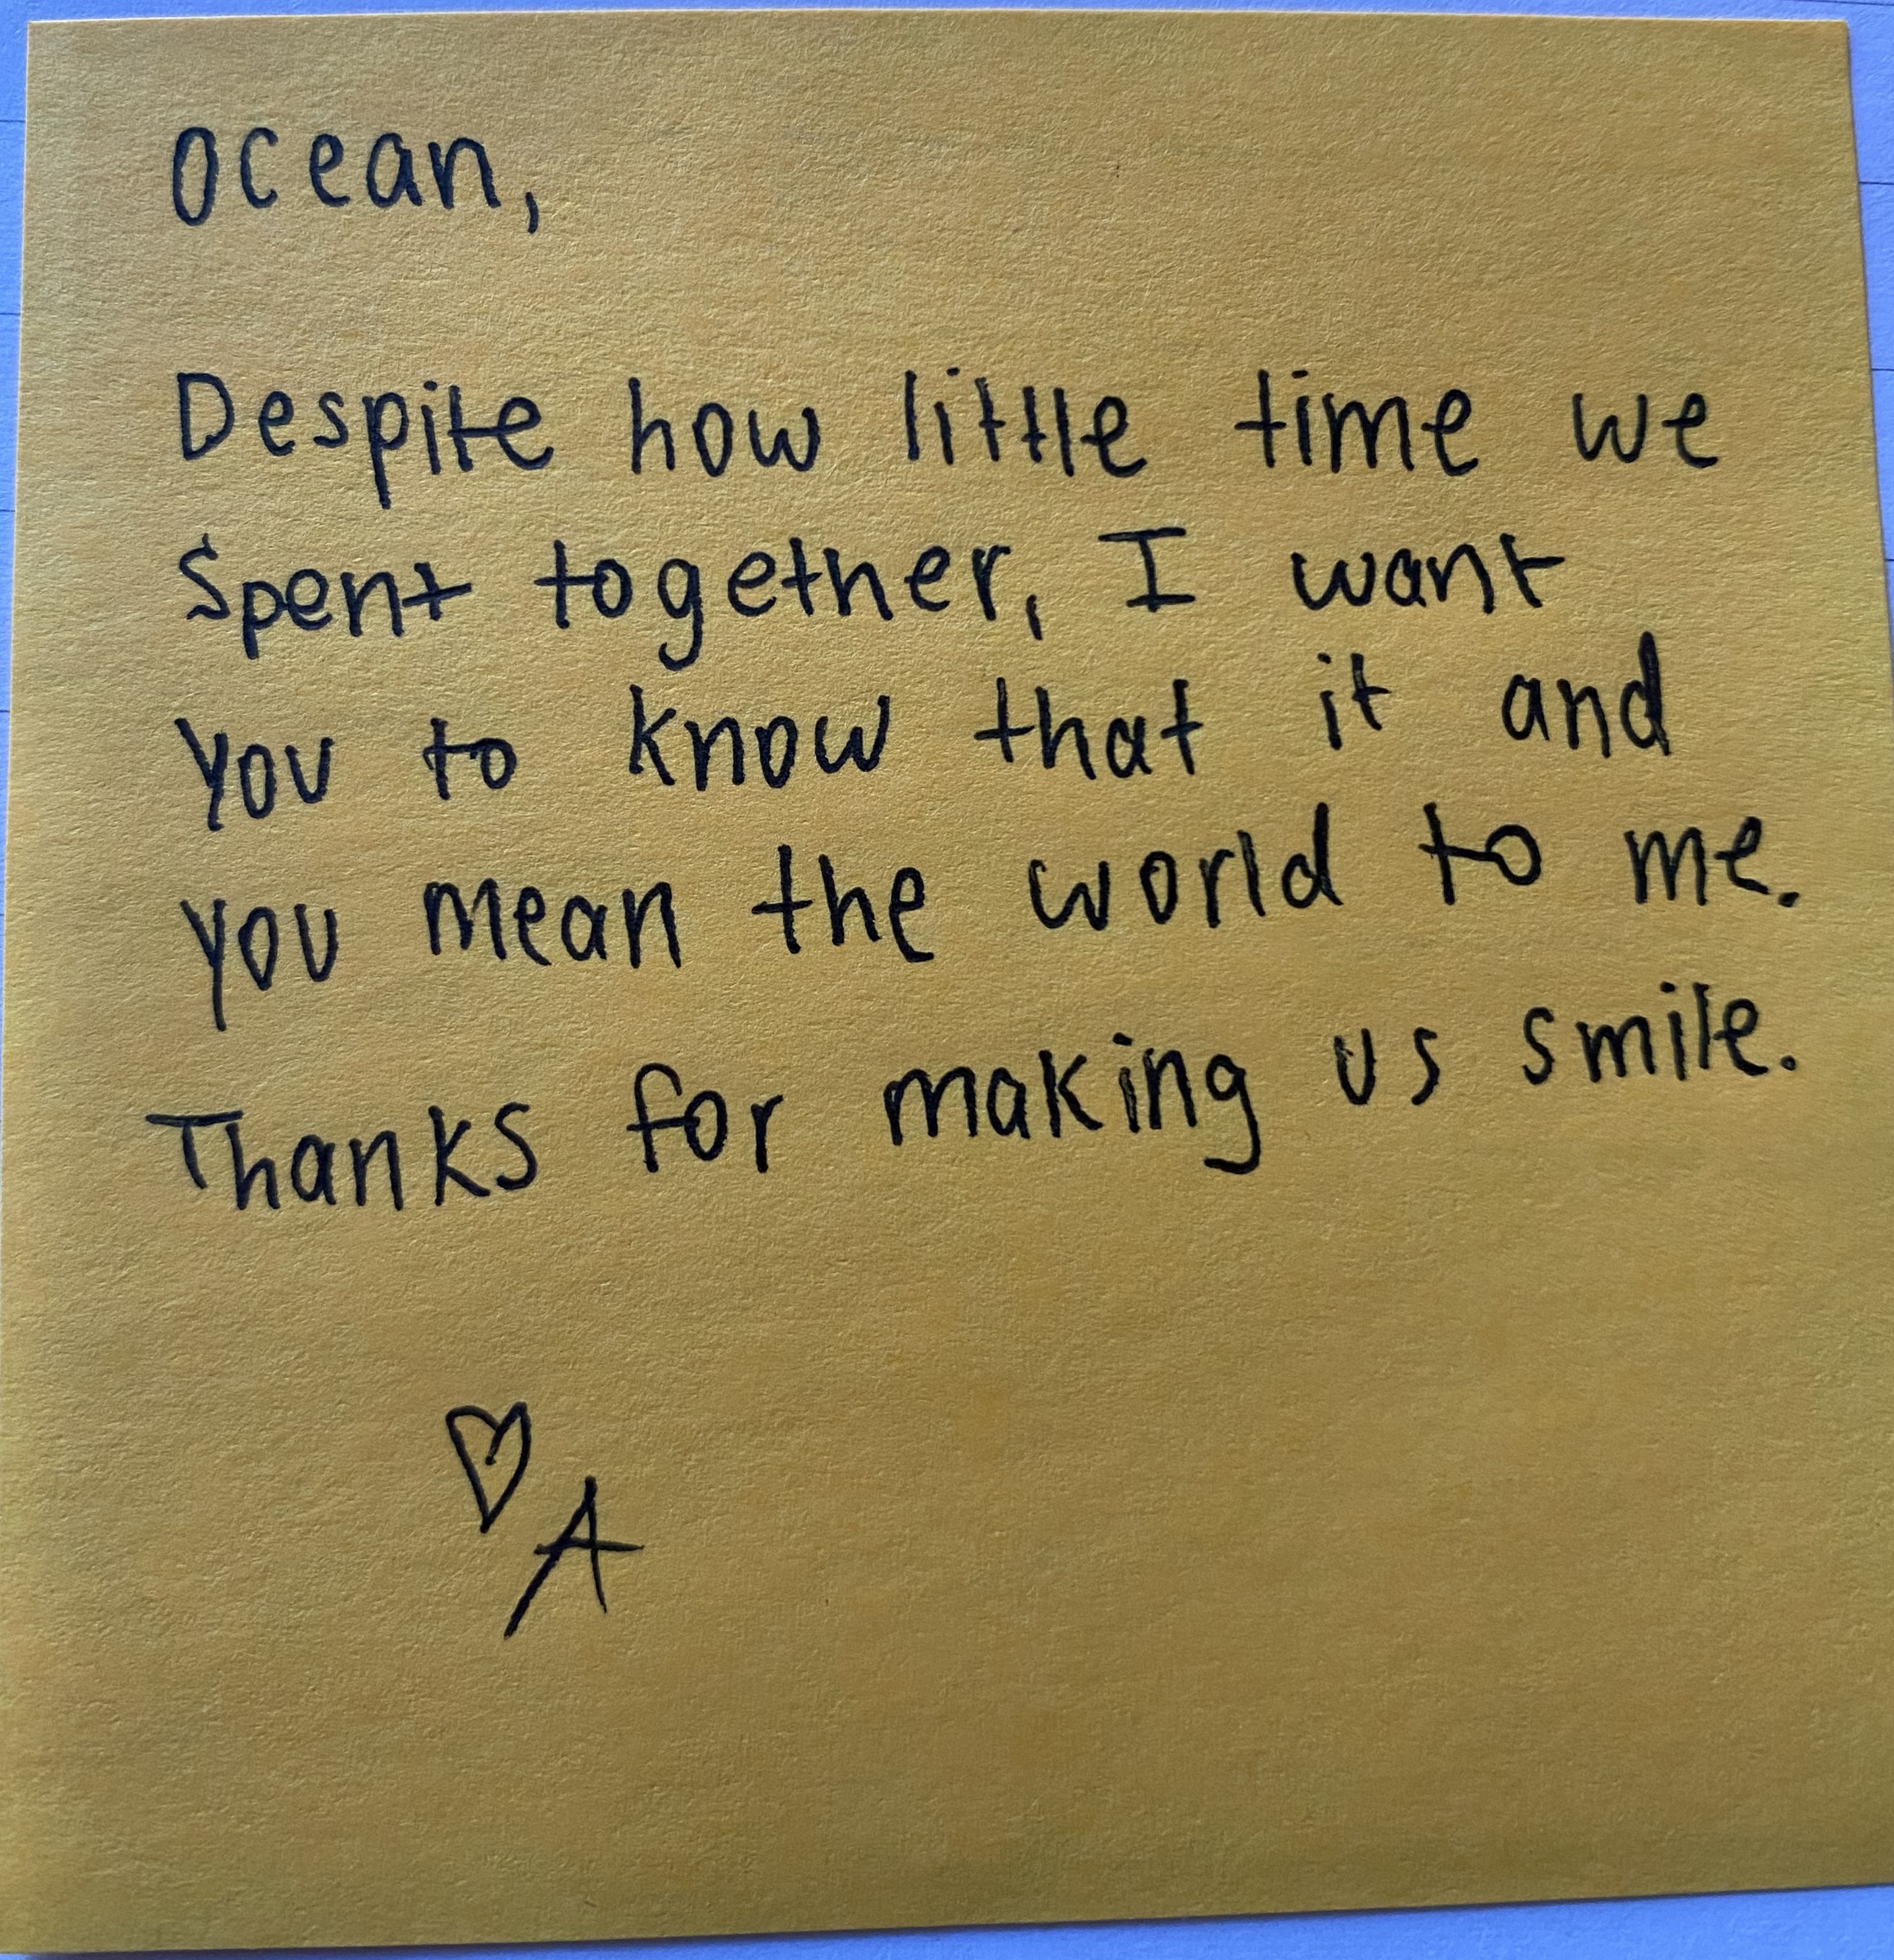 Ocean,
Despite how little time we
Spent together, I want
you to know that it and
you mean the world to me.
Thanks for making us smile.
♡
A